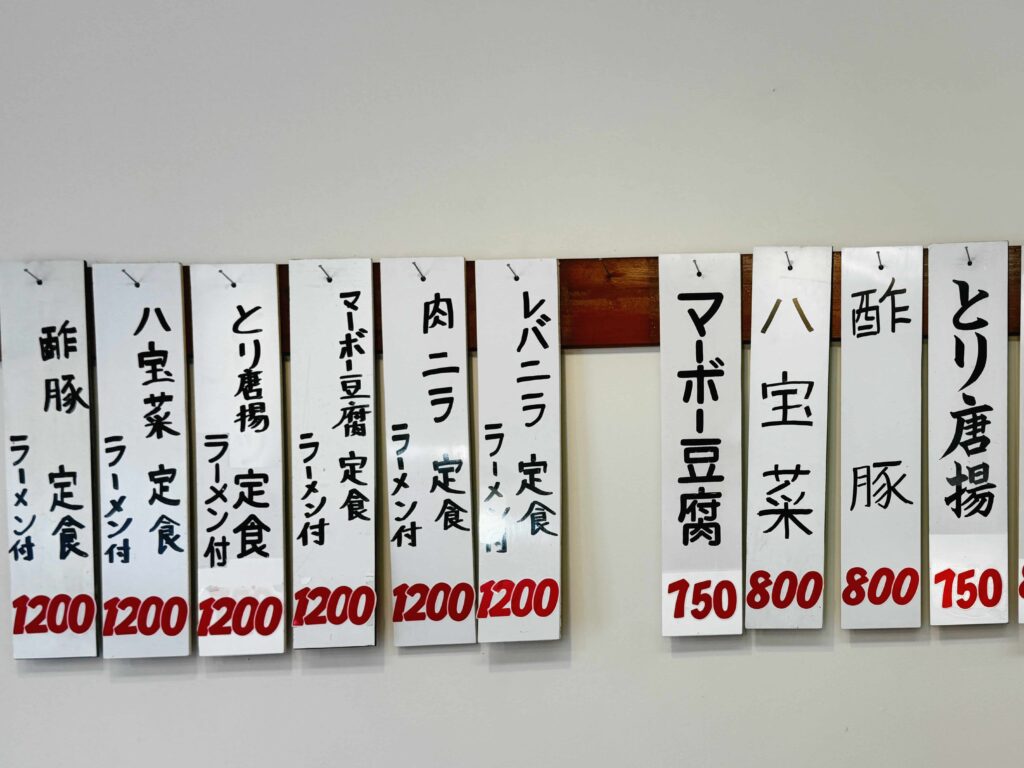 とり唐揚
750
酢豚
800
八宝菜
800
マーボー豆腐
750
レバニラ 定食
ラーメン付
1200
肉ニラ 定食
ラーメン付
1200
マーボー豆腐 定食
ラーメン付
1200
とり唐揚 定食
ラーメン付
1200
八宝菜 定食
ラーメン付
1200
酢豚 定食
ラーメン付
1200